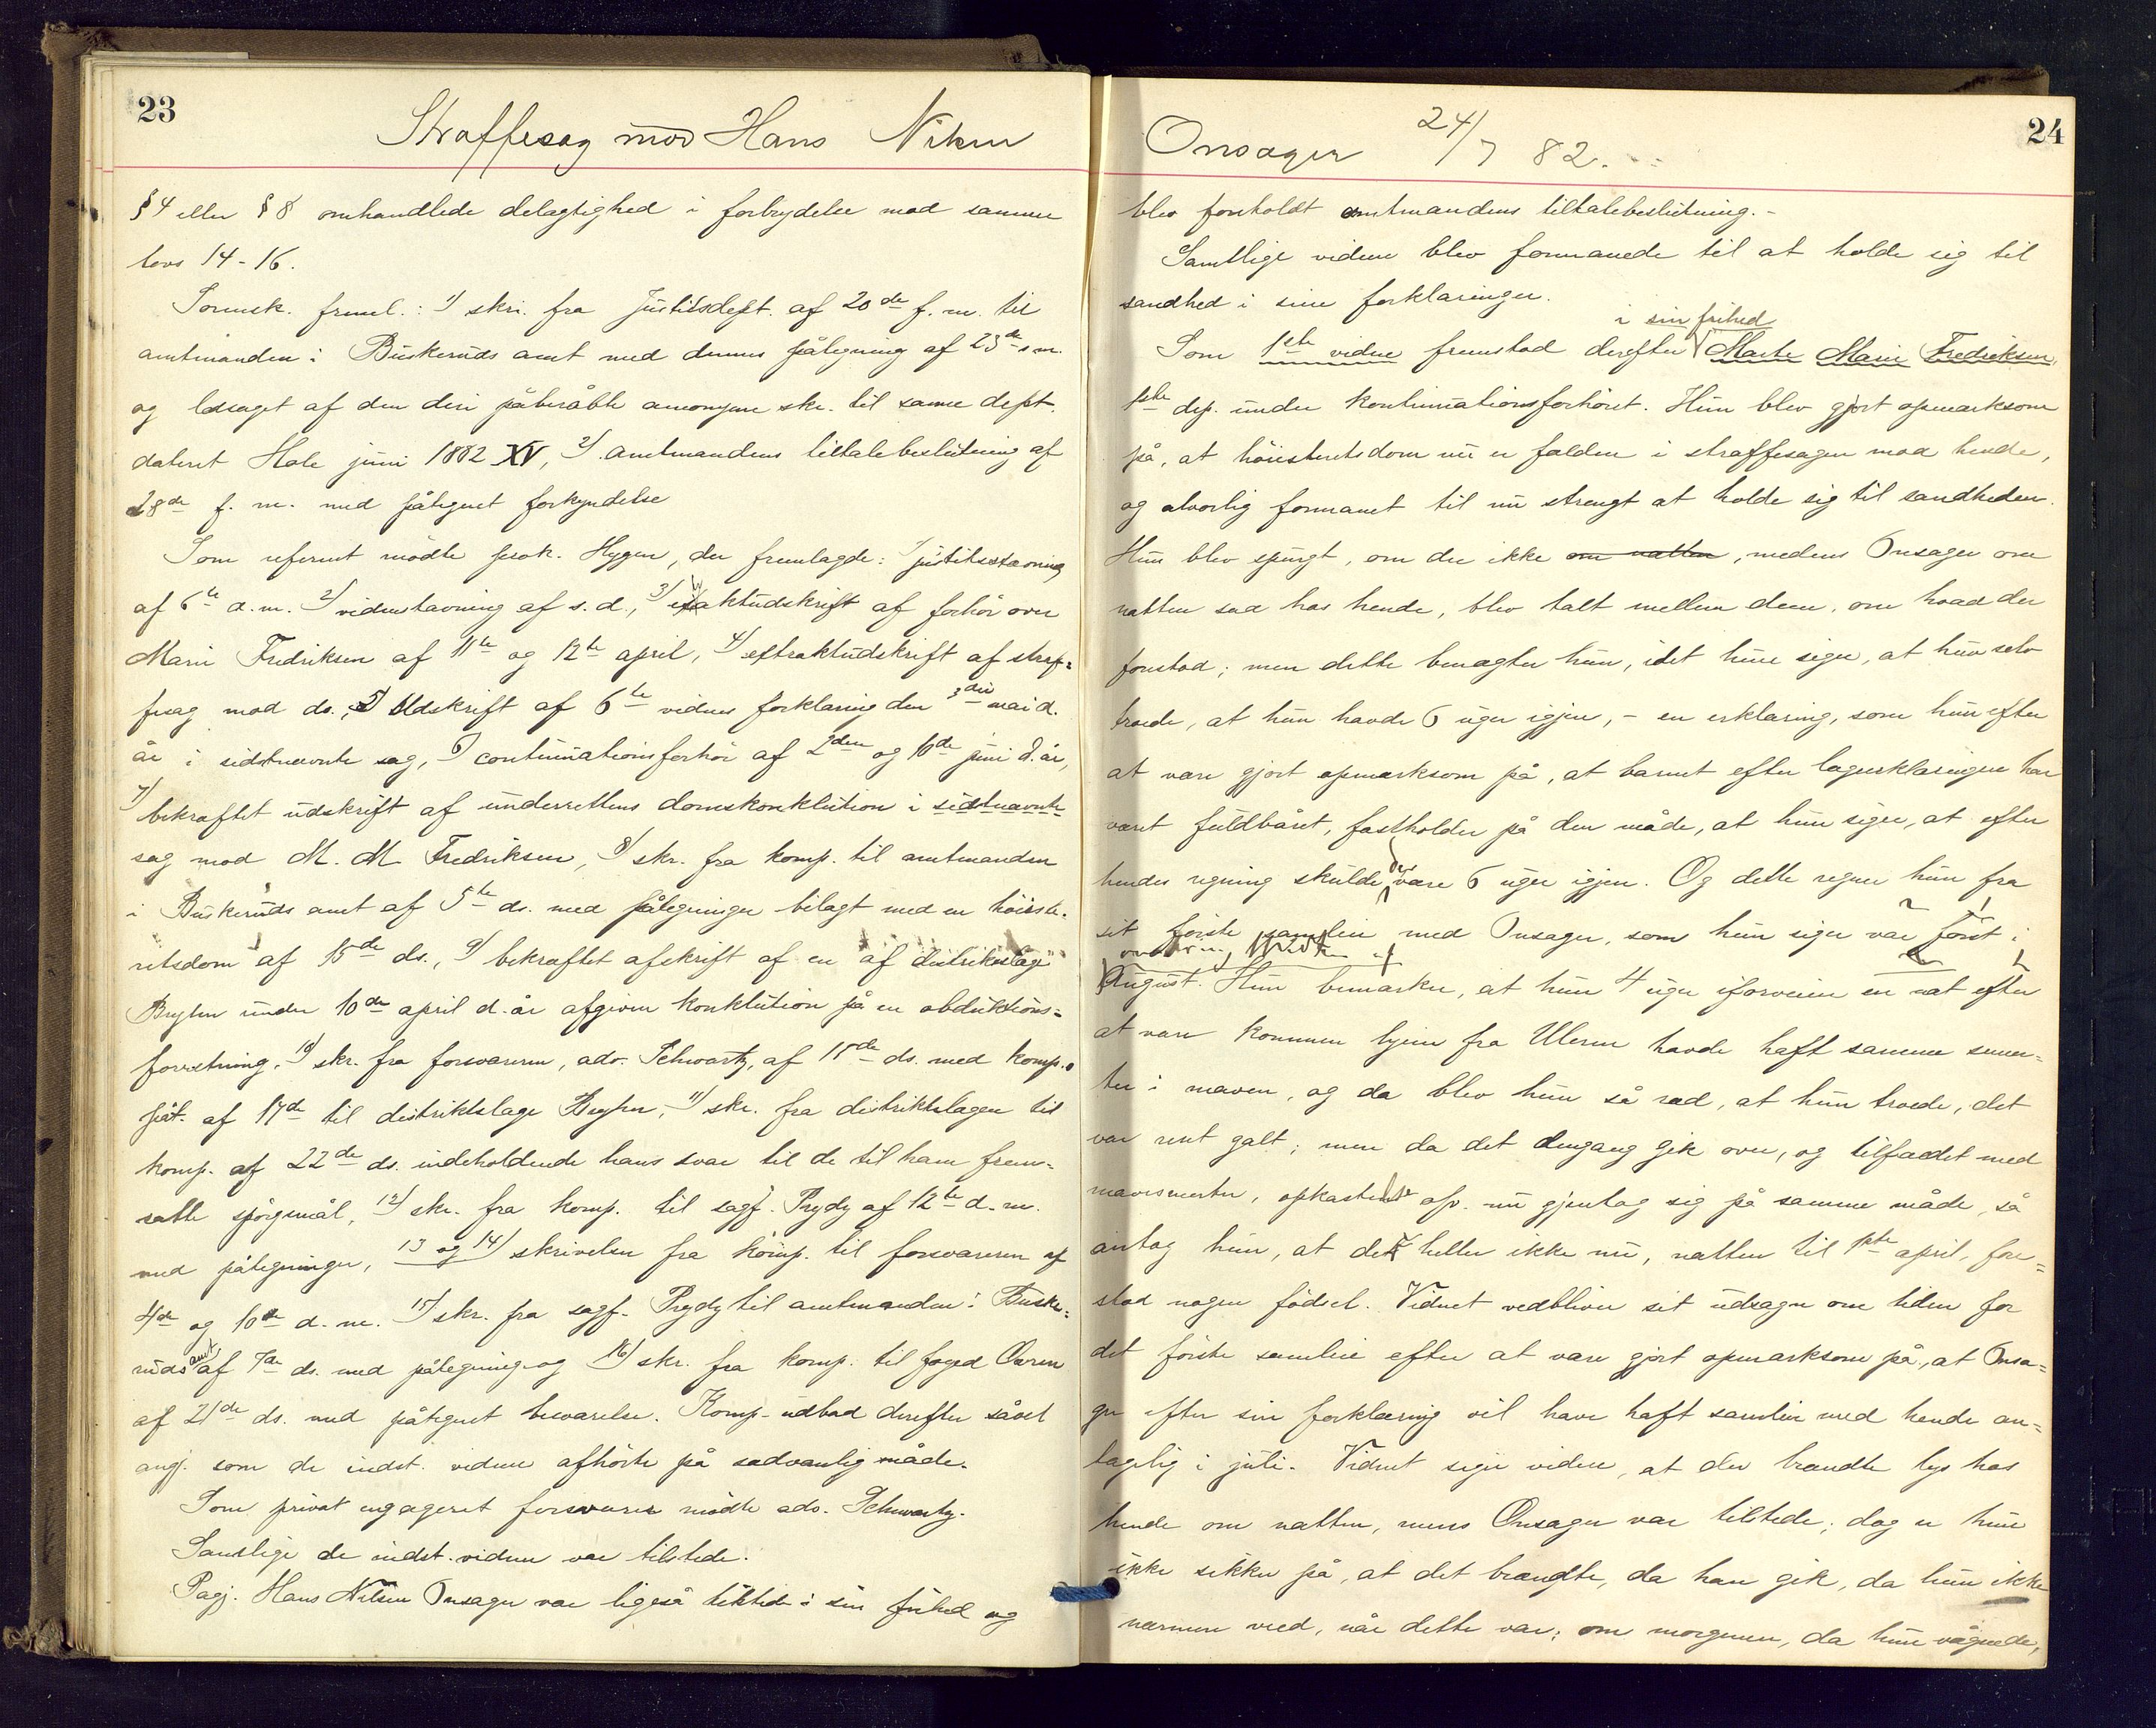 23
Straffesag mod Hans Nilsen
§4 eller §8 omhandlede delagtighed i forbrydelse mod samme
lovs 14-16.
Sorensk. freml.: 1) skr. fra Justitsdept. af 20de f. m. til
amtmanden i Buskeruds amt med dennes påtegning af 23de s.m.
og ledsaget af den deri påberåbte anonyme skr. til samme dept.
dateret Hole juni 1882 XV, 2) amtmandens tiltalebeslutning af
28de f. m. med påtegnet forkyndelse
Som referent mödte prok. Hygen, der fremlagde: 1) justitsstævning
af 6te d.m. 2) vidnestævning af s.d., 3) extraktudskrift af forhör over
Marie Fredriksen af 11te og 12te april, 4) extraktudskrift af straf-
fesag mod ds., 5) Udskrift af 6te vidnes forklaring den 3die mai d.
år i sidstnævnte sag, 6) continuationsforhör af 2den og 10de juni d. år,
7) bekræftet udskrift af underrettens domskonklution i sidstnævnte
sag mod M. M. Fredriksen, 8) skr. fra komp. til amtmanden
i Buskeruds amt af 5te ds. med påtegninger bilagt med en höieste-
retsdom af 15de ds., 9) bekræftet afskrift af en af distriktslæge
under 10de april d. år afgiven konklution på en obduktions-
forretning, 10) skr. fra forsvareren, adv. Schwartz, af 15de ds. med komp.s
påt. af 17de til distriktslæge 11) skr. fra distriktslægen til
komp. af 22de ds. indeholdende hans svar til de til ham frem-
satte spörgsmål, 12) skr. fra komp. til sagf. Prydz af 12te d. m.
med påtegninger, 13 og 14) skrivelser fra komp. til forsvareren af
4de og 10de d. m. 15) skr. fra sagf. Prydz til amtmanden i Buske-
ruds amt af 7de ds. med påtegning og 16) skr. fra komp. til foged
af 21de ds. med påtegnet besvarelse. Komp. udbad derefter såvel
angj. som de indst. vidner afhörte på sædvanlig måde.
Som privat engageret forsvarer mödte adv. Schwartz.
Samtlige de indst. vidner var tilstede.
Pågj. Hans Nilsen Onsager var ligeså tilstede i sin frihed og
24
Onsager 24/7 82.
blev foreholdt amtmandens tiltalebeslutning.-
Samtlige vidner blev formanede til at holde sig til
sandhed i sine forklaringer.
i sin frihed
Som 1ste vidne fremstod derefter Marte Marie Fredriksen,
1ste dep. under kontinuationsforhöret. Hun blev gjort opmærksom
på, at höiesteretsdom nu er falden i straffesagen mod hende,
og alvorlig formanet til nu strengt at holde sig til sandheden.
Hun blev spurgt, om der ikke om natten, medens Onsager om
natten sad hos hende, blev talt mellem dem, om hvad der
forestod; men dette benægter hun, idet hun siger, at hun selv
troede, at hun havde 6 uger igjen, - en erklæring, som hun efter
at være gjort opmærksom på, at barnet efter lægeerklæringen har
været fuldbåret, fastholder på den måde, at hun siger, at efter
hendes regning skulde der være 6 uger igjen. Og dette regner hun fra
sit förste samleie med Onsager, som hun siger var först i
August. Hun bemærker, at hun 4 uger iforveien en nat efter
at være kommen hjem fra Ulern havde haft samme smer-
ter i maven, og da blev hun så ræd, at hun troede, det
var rent galt; men da det dengang gik over, og tilfældet med
mavesmerter, opkastelse osv. nu gjentog sig på samme måde, så
antog hun, at det heller ikke nu, natten til 1ste april, fore-
stod nogen födsel. Vidnet vedbliver sit udsagn om tiden for
det förste samleie efter at være gjort opmærksom på, at Onsa-
ger efter sin forklaring vil have haft samleie med hende an-
tagelig i juli. Vidnet siger videre, at der brændte lys hos
hende om natten, mens Onsager var tilstede; dog er hun
ikke sikker på, at det brændte, da han gik, da hun ikke
nærmere veed, når dette var; om morgenen, da hun vågnede,